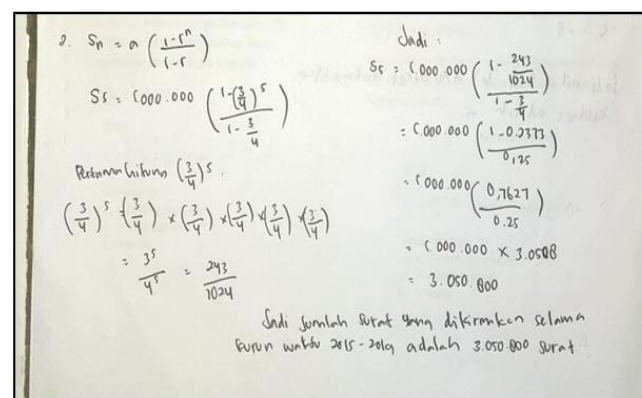 2. Sn = a (1-r^n / 1-r)
S5 = 1.000.000 (1-(3/4)^5 / 1-3/4)
Pertama hitung (3/4)^5.
(3/4)^5 = (3/4) × (3/4) × (3/4) × (3/4) × (3/4)
= 3^5 / 4^5 = 243 / 1024
Jadi :
S5 = 1.000.000 (1 - 243/1024 / 1 - 3/4)
= 1.000.000 (1-0.2373 / 0,25)
= 1.000.000 (0,7627 / 0.25)
= 1.000.000 × 3.0508
= 3.050.800
Jadi jumlah surat yang dikirimkan selama
kurun waktu 2015-2019 adalah 3.050.800 surat